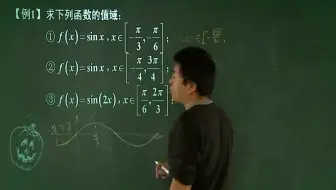 【例1】求下列函数的值域：
① f(x)=sin x, x∈[-π/3, -π/6]；
② f(x)=sin x, x∈[-π/4, 3π/4]；
③ f(x)=sin(2x), x∈[π/6, 2π/3]